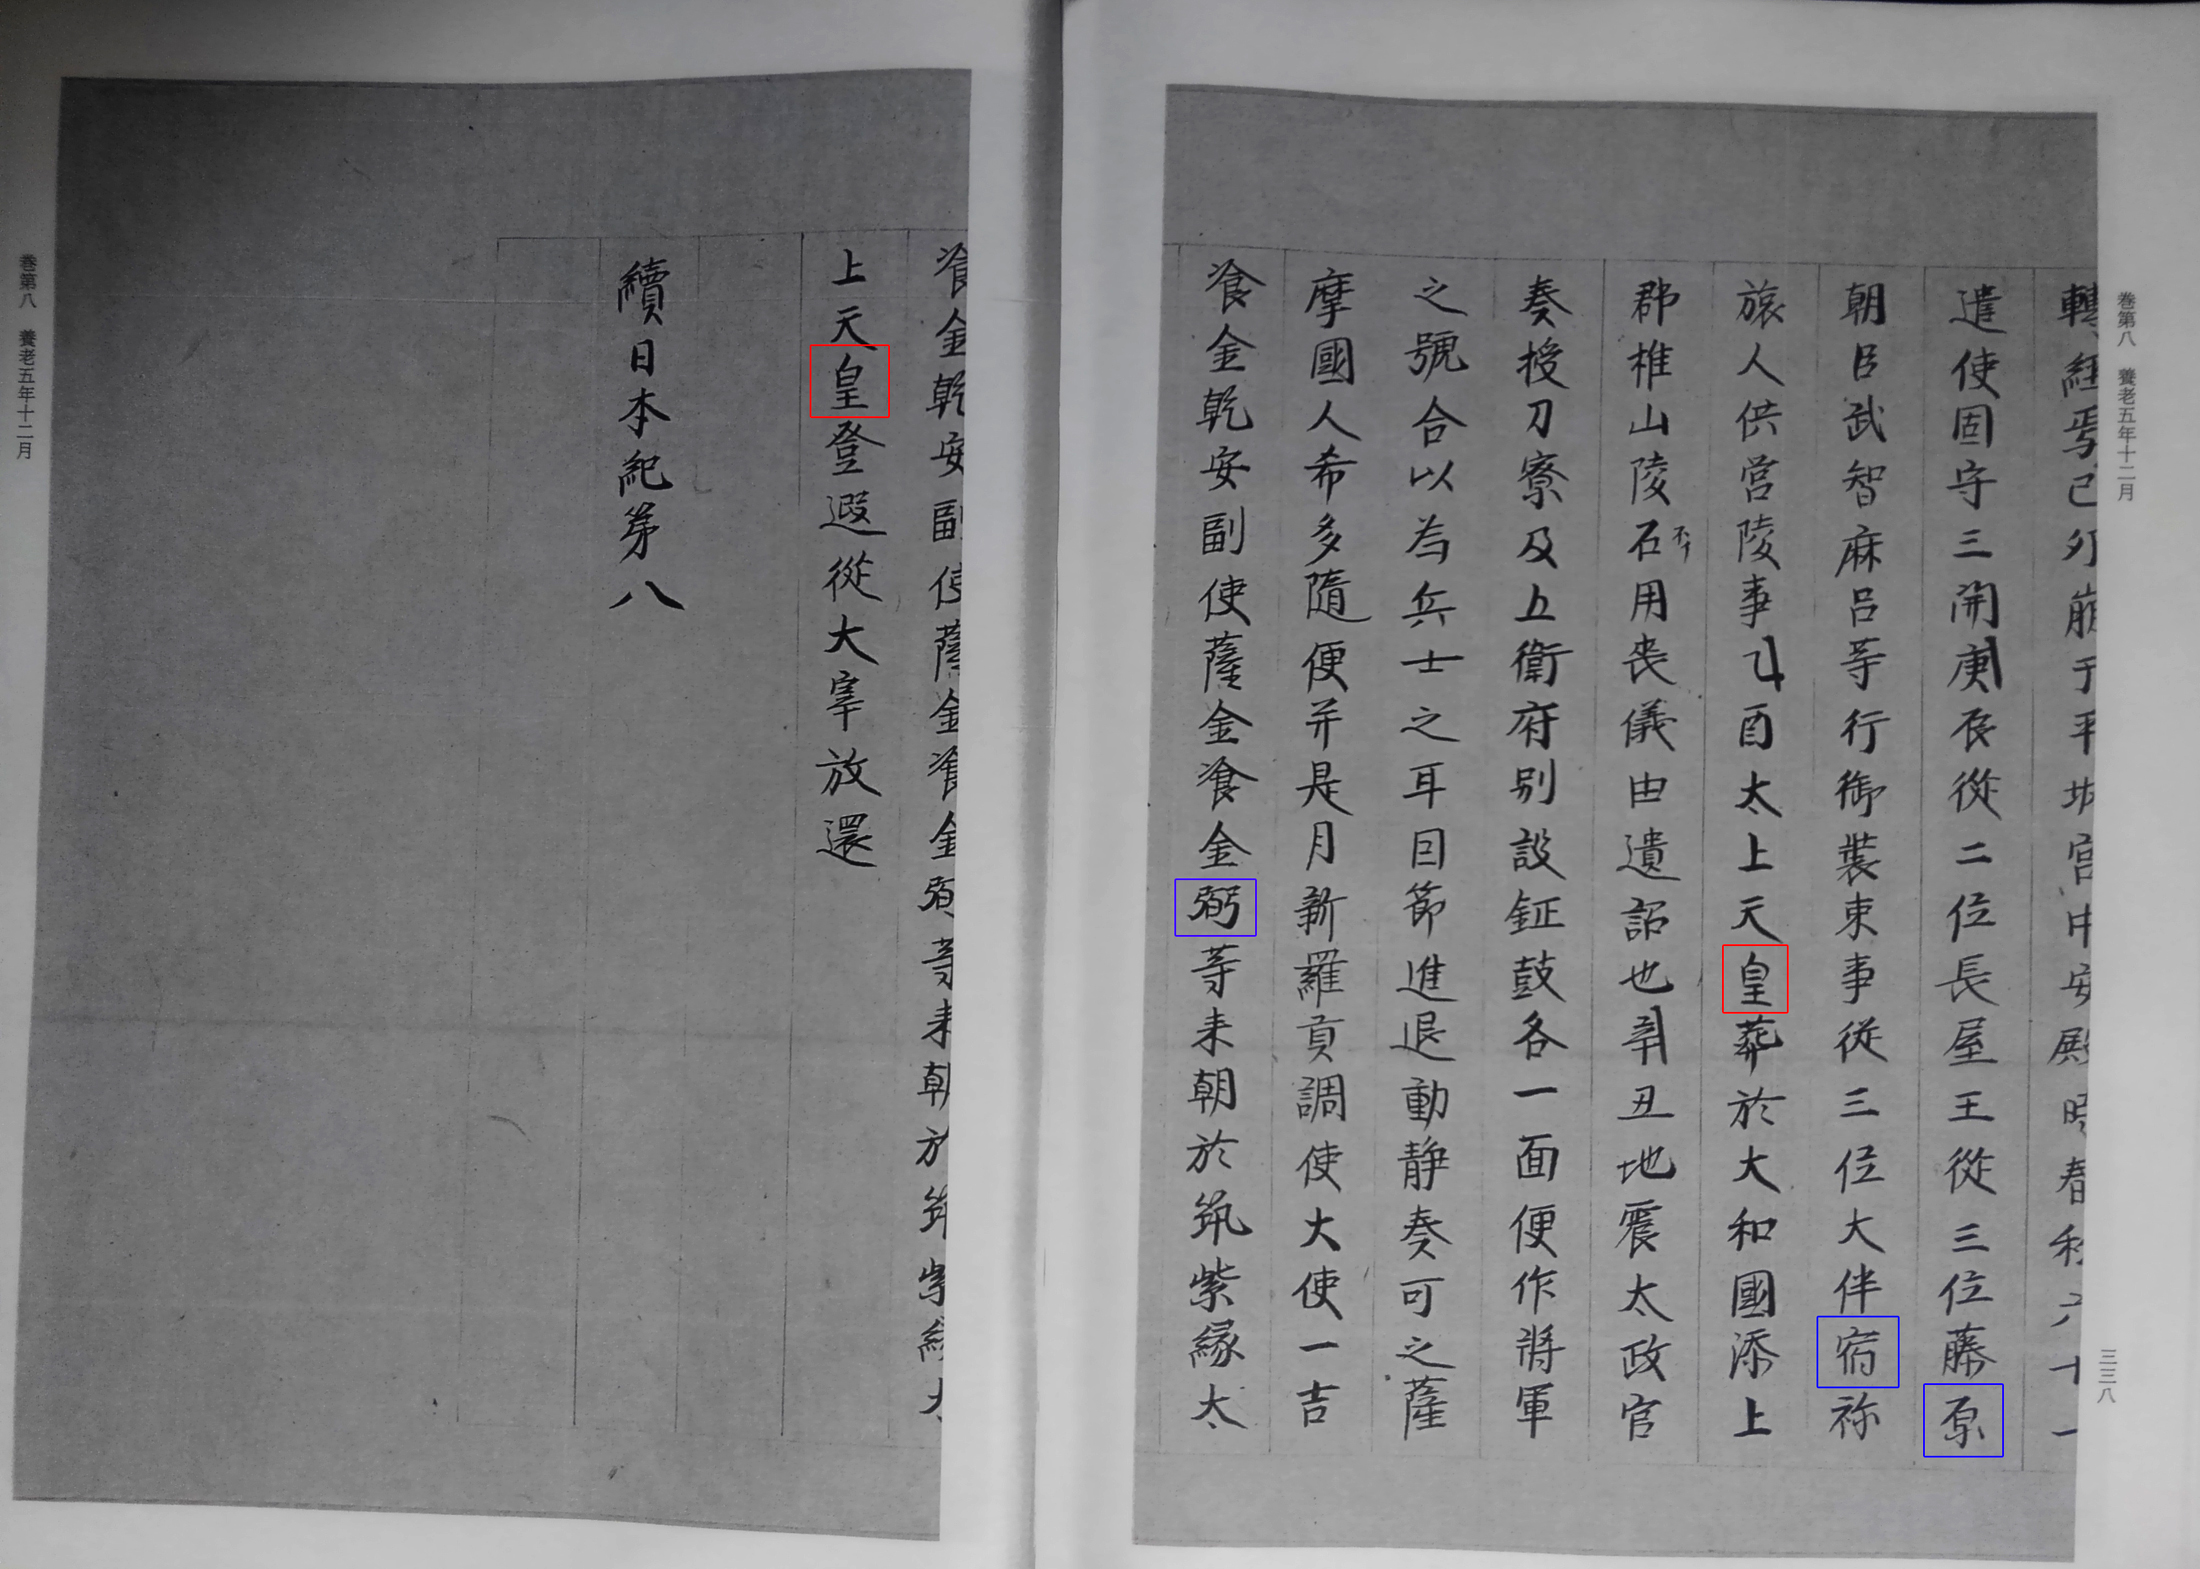 巻第八 養老五年十二月
三三八
轉經焉己夘崩于平城宮中安殿時春秋六十一
遣使固守三開庚辰從二位長屋王從三位藤原
朝臣武智麻呂等行御裝束事從三位大伴宿祢
旅人供営陵事乙酉太上天皇葬於大和國添上
郡椎山陵不石用喪儀由遺詔也辛丑地震太政官
奏授刀寮及五衛府別設鉦鼓各一面便作將軍
之號合以為兵士之耳目節進退動静奏可之薩
摩國人希多隨便并是月新羅貢調使大使一吉
飡金乾安副使薩金飡金弼等来朝於筑紫縁太
飡金乾安副使薩金飡金弼等来朝於筑紫縁太
上天皇登遐從大宰放還
續日本紀第八
巻第八 養老五年十二月